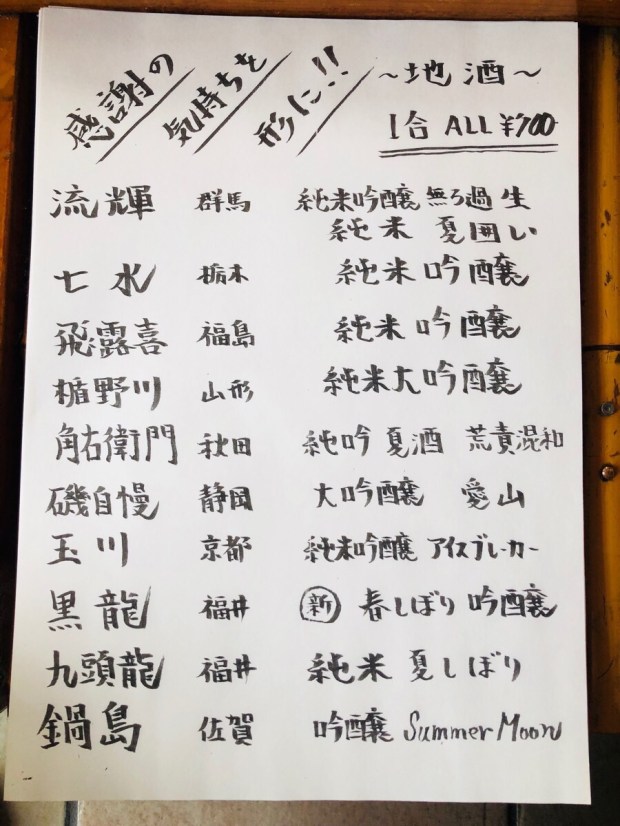 感謝の
気持ちを
形に!!
～地酒～
1合 ALL ¥700
流輝 群馬 純米吟醸 無ろ過生
純米 夏囲い
七水 栃木 純米吟醸
飛露喜 福島 純米吟醸
楯野川 山形 純米大吟醸
角右衛門 秋田 純吟 夏酒 荒責混和
磯自慢 静岡 大吟醸 愛山
玉川 京都 純米吟醸 アイスブレーカー
黒龍 福井 新 春しぼり 吟醸
九頭龍 福井 純米 夏しぼり
鍋島 佐賀 吟醸 Summer Moon